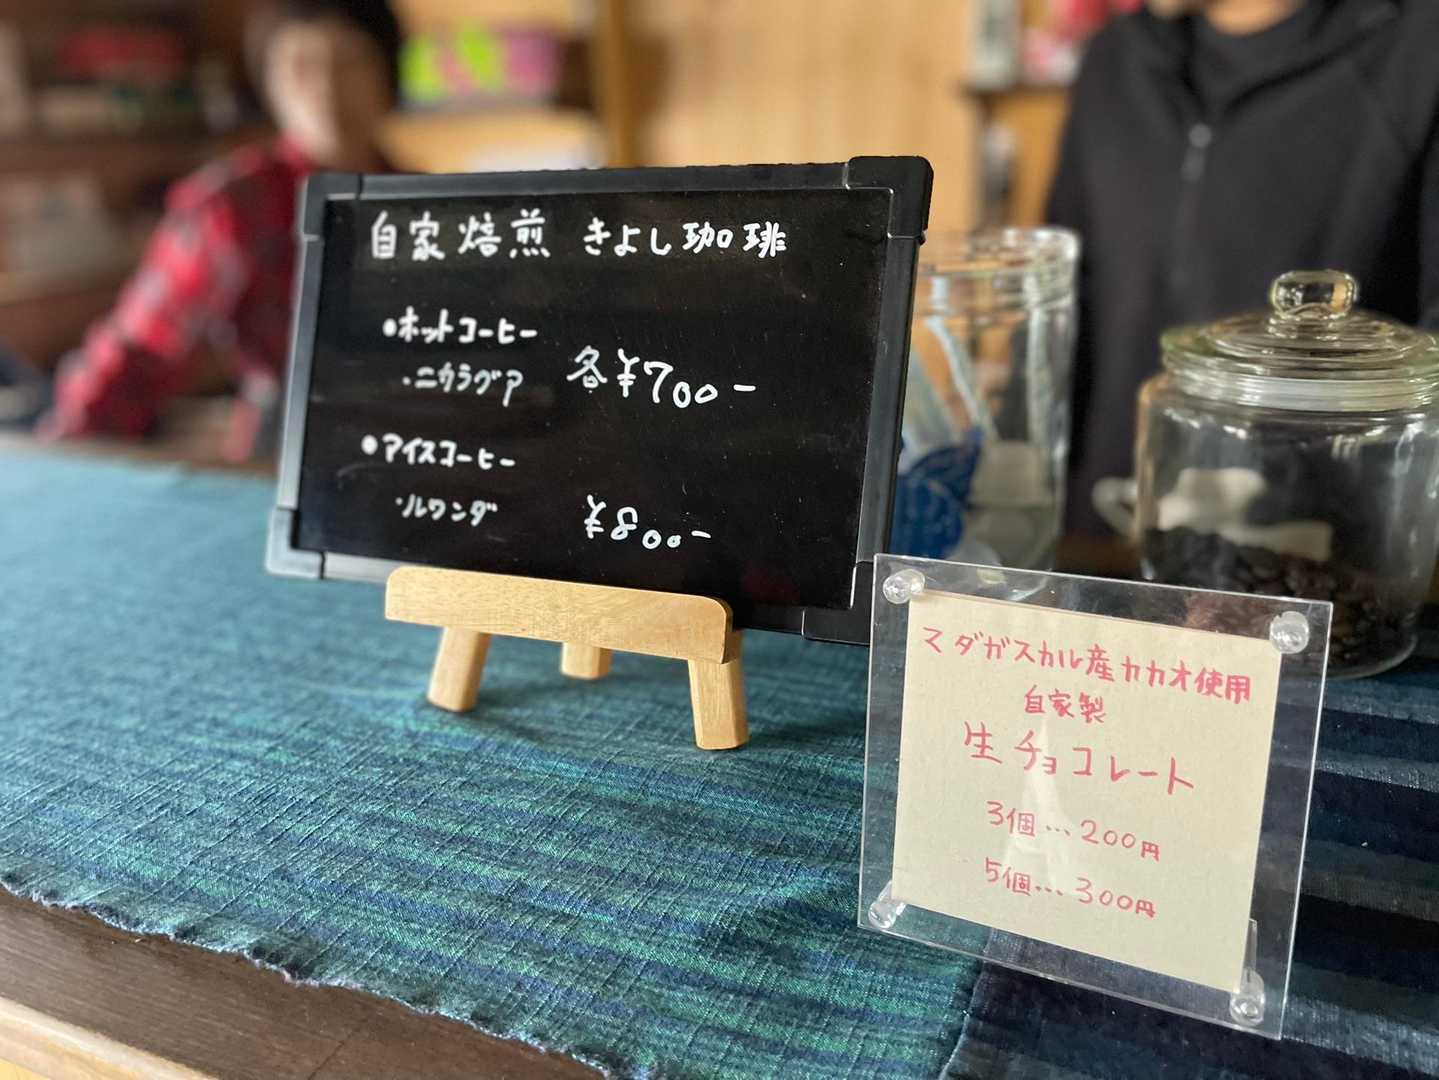 自家焙煎 きよし珈琲
●ホットコーヒー
・ニカラグア 各¥700-
●アイスコーヒー
・ルワンダ ¥800-
マダガスカル産カカオ使用
自家製
生チョコレート
3個…200円
5個…300円